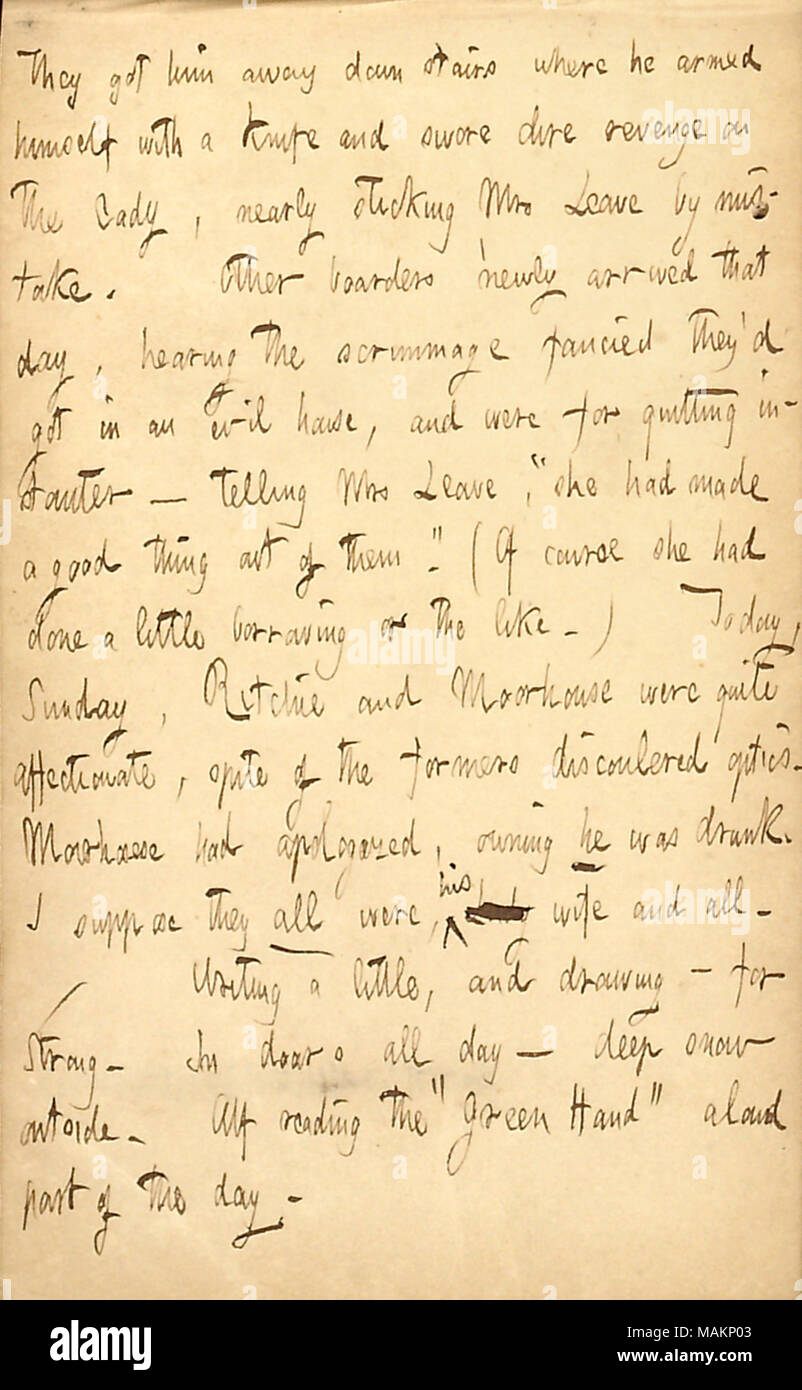 They got him away down stairs where he armed
himself with a knife and swore dire revenge on
the lady, nearly sticking Mrs Leave by mis-
take. Other boarders newly arrived that
day, hearing the scrimmage fancied they'd
got in an evil house, and were for quitting in-
stanter — telling Mrs Leave, "she had made
a good thing out of them." (Of course she had
done a little borrowing or the like.) Today,
Sunday, Ritchie and Moorhouse were quite
affectionate, spite of the formers discoulered optics.
Moorhouse had apologized, owning he was drunk.
I suppose they all were, his wife and all.
Writing a little, and drawing — for
Strong. In doors all day — deep snow
outside. Alf reading the "Green Hand" aloud
part of the day.
alamy
Image ID: MAKP03
www.alamy.com